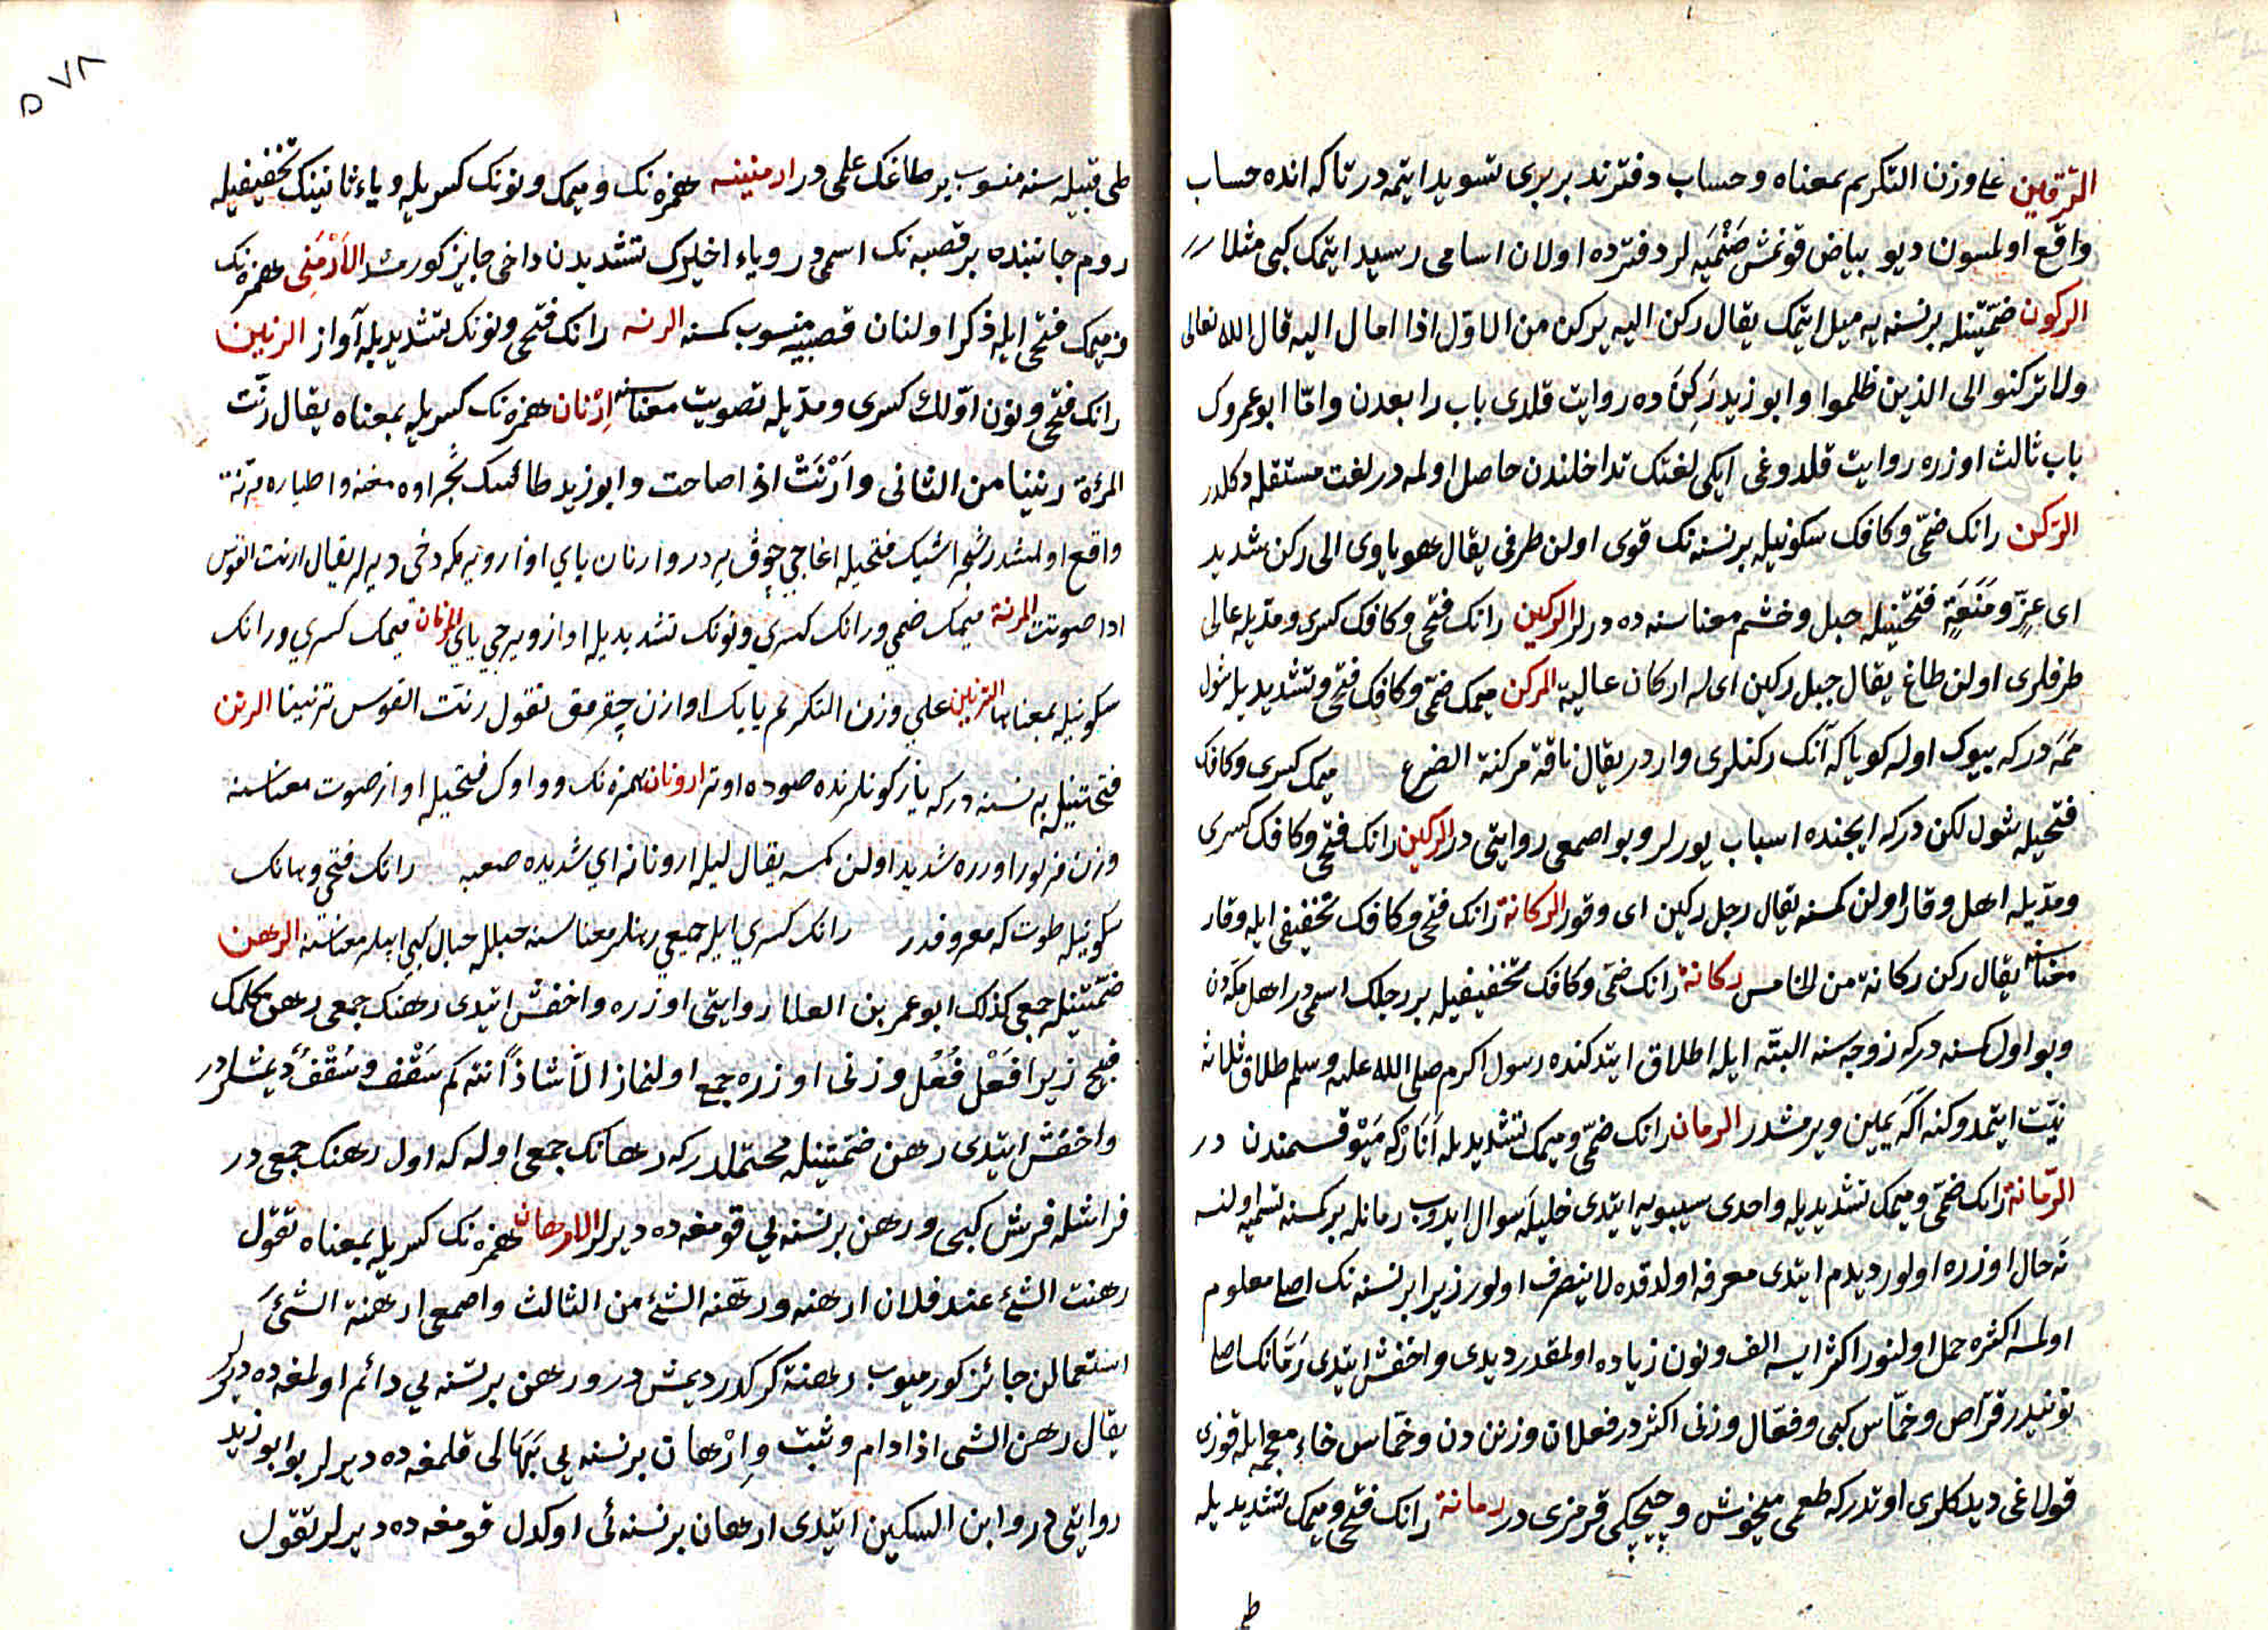 الترقين على وزن التكريم بمعناه وحساب دفترنده بر يرى تسويد ايتمه در تا كه انده حساب
واقع اولمسون ديو بياض قونمش صنميه لر دفترده اولان اسامى رسيد ايتمك كبى مثلا
الركون ضمتينله بر نسنه يه ميل ايتمك يقال ركن اليه يركن من الاول اذا امال اليه قال الله تعالى
ولا تركنوا الى الذين ظلموا وابو زيد ركن ده روايت قلدى باب رابعدن واما ابو عمروك
باب ثالث اوزره روايت قلدوغى ايكى لغتك تداخلندن حاصل اولمه در لغت مستقله دكلدر
الركن رانك ضمى وكافك سكونيله بر نسنه نك قوى اولن طرفى يقال هو ياوى الى ركن شديد
اى عز ومنعة فتحتينله جبل وخشم معناسنه ده ديرلر الركين رانك فتحى وكافك كسرى ومديله عالى
طرفلرى اولن طاغ يقال جبل ركين اى له اركان عالية المركن ميمك ضمى وكافك فتحى وتشديديله شول
ممه در كه بيوك اوله كويا كه آنك ركنلرى واردر يقال ناقة مركنة الضرع ميمك كسرى وكافك
فتحيله شول لكن در كه ايچنده اسباب يورلر وبو اصمعى روايتى در الركين رانك فتحى وكافك كسرى
ومديله اهل وقار اولن كمسنه يقال رجل ركين اى وقور الركانة رانك فتحى وكافك تخفيفى ايله وقار
معناسنه يقال ركن ركانة من الخامس ركانة رانك ضمى وكافك تخفيفيله بر رجلك اسمى در اهل مكه دن
وبو اول كمسنه در كه زوجه سنه البته ايله اطلاق ايتدكنده رسول اكرم صلى الله عليه وسلم طلاق ثلاثه
نيت ايتمدوكنه اكا يمين ويرمشدر الرمان رانك ضمى وميمك تشديديله انار كه ميوه قسمندن در
الرمانة رانك ضمى وميمك تشديديله واحدى سيبويه ايتدى خليله سوال ايدوب رمانله بر كمسنه تسميه اولنسه
نه حال اوزره اولور ديدم ايتدى معرفه اولدقده لا ينصرف اولور زيرا بر نسنه نك اصلى معلوم
اولمسه اكثره حمل اولنور اكثر ايسه الف ونون زياده اولمقدر ديدى واخفش ايتدى رمانك اصلى
نونيدر قراص وخماص كبى وفعال وزنى اكثردر فعلان وزنندن وخماص خاء معجمه ايله قوزى
قولاغى ديدكلرى اوتدر كه طعمى ميخوش وچيچكى قرمزى در رمانة رانك فتحى وميمك تشديديله
طى
٥٧٨
طى قبيله سنه منسوب بر طاغك علمى در ارمينيه همزه نك وميمك ونونك كسريله وياء ثانينك تخفيفيله
روم جانبنده بر قصبه نك اسمى در وياء اخيرك تشديدن داخى جايز كورمشلر الارمنى همزه نك
وميمك فتحى ايله ذكر اولنان قصبيه منسوب كمسنه الرنه رانك فتحى ونونك تشديديله آواز الرنين
رانك فتحى ونون اولك كسرى ومديله تصويت معناسنه ارنان همزه نك كسريله بمعناه يقال رنت
المرءة رنينا من الثانى وارنت اذا صاحت وابو زيد طائينك
واقع اولمشدر شجراشيك فتحيله اغاجى چوق ير در وارنان ياي اواز ويرمكه دخى ديرلر يقال ارنت القوس
اذا صوتت المرنة ميمك ضمي ورانك كسري ونونك تشديديله اواز ويرجي ياي المرنان ميمك كسري ورانك
سكونيله بمعناها الترنين على وزن التكريم يايك اوازن چقرمق تقول رنت القوس ترنينا الرنن
فتحتينله بر نسنه در كه ياز كونلرنده صوده اوتر ارونان همزه نك وواوك فتحيله اواز صوت معناسنه
وزن مزبور اوزره شديد اولن كمسنه يقال ليلة ارونانة اي شديدة صعبه رانك فتحى وهانك
سكونيله طوت كه معروفدر رانك كسري ايله جمعي رهنلر معناسنه حبلله حبال كبي ايپلر معناسنه الرهن
ضمتينله جمعى كذلك ابو عمر بن العلا روايتى اوزره واخفش ايتدى رهنك جمعى رهن كلمك
قبيح زيرا فعل فعل وزنى اوزره جمع اولنماز الا شاذا انته كم سقف وسقف ديمشلردر
واخفش ايتدى رهن ضمتينله محتملدر كه رهانك جمعى اوله كه اول رهنك جمعى در
فراشله فرش كبى ورهن بر نسنه يي قومغه ده ديرلر الارهان همزه نك كسريله بمعناه تقول
رهنت الشئ عند فلان ارهنه ورهنه الشئ من الثالث واصمعى ارهنة الشئ
استعمالن جائز كورميوب رهنة كركدر ديمش در ورهن بر نسنه يي دائم اولمغه ده ديرلر
يقال رهن الشى اذا دام وثبت وارهان بر نسنه يي بهالى قلمغه ده ديرلر بو ابو زيد
روايتى در وابن السكين ايتدى ارهان بر نسنه ئى اوكدل قومغه ده ديرلر تقول